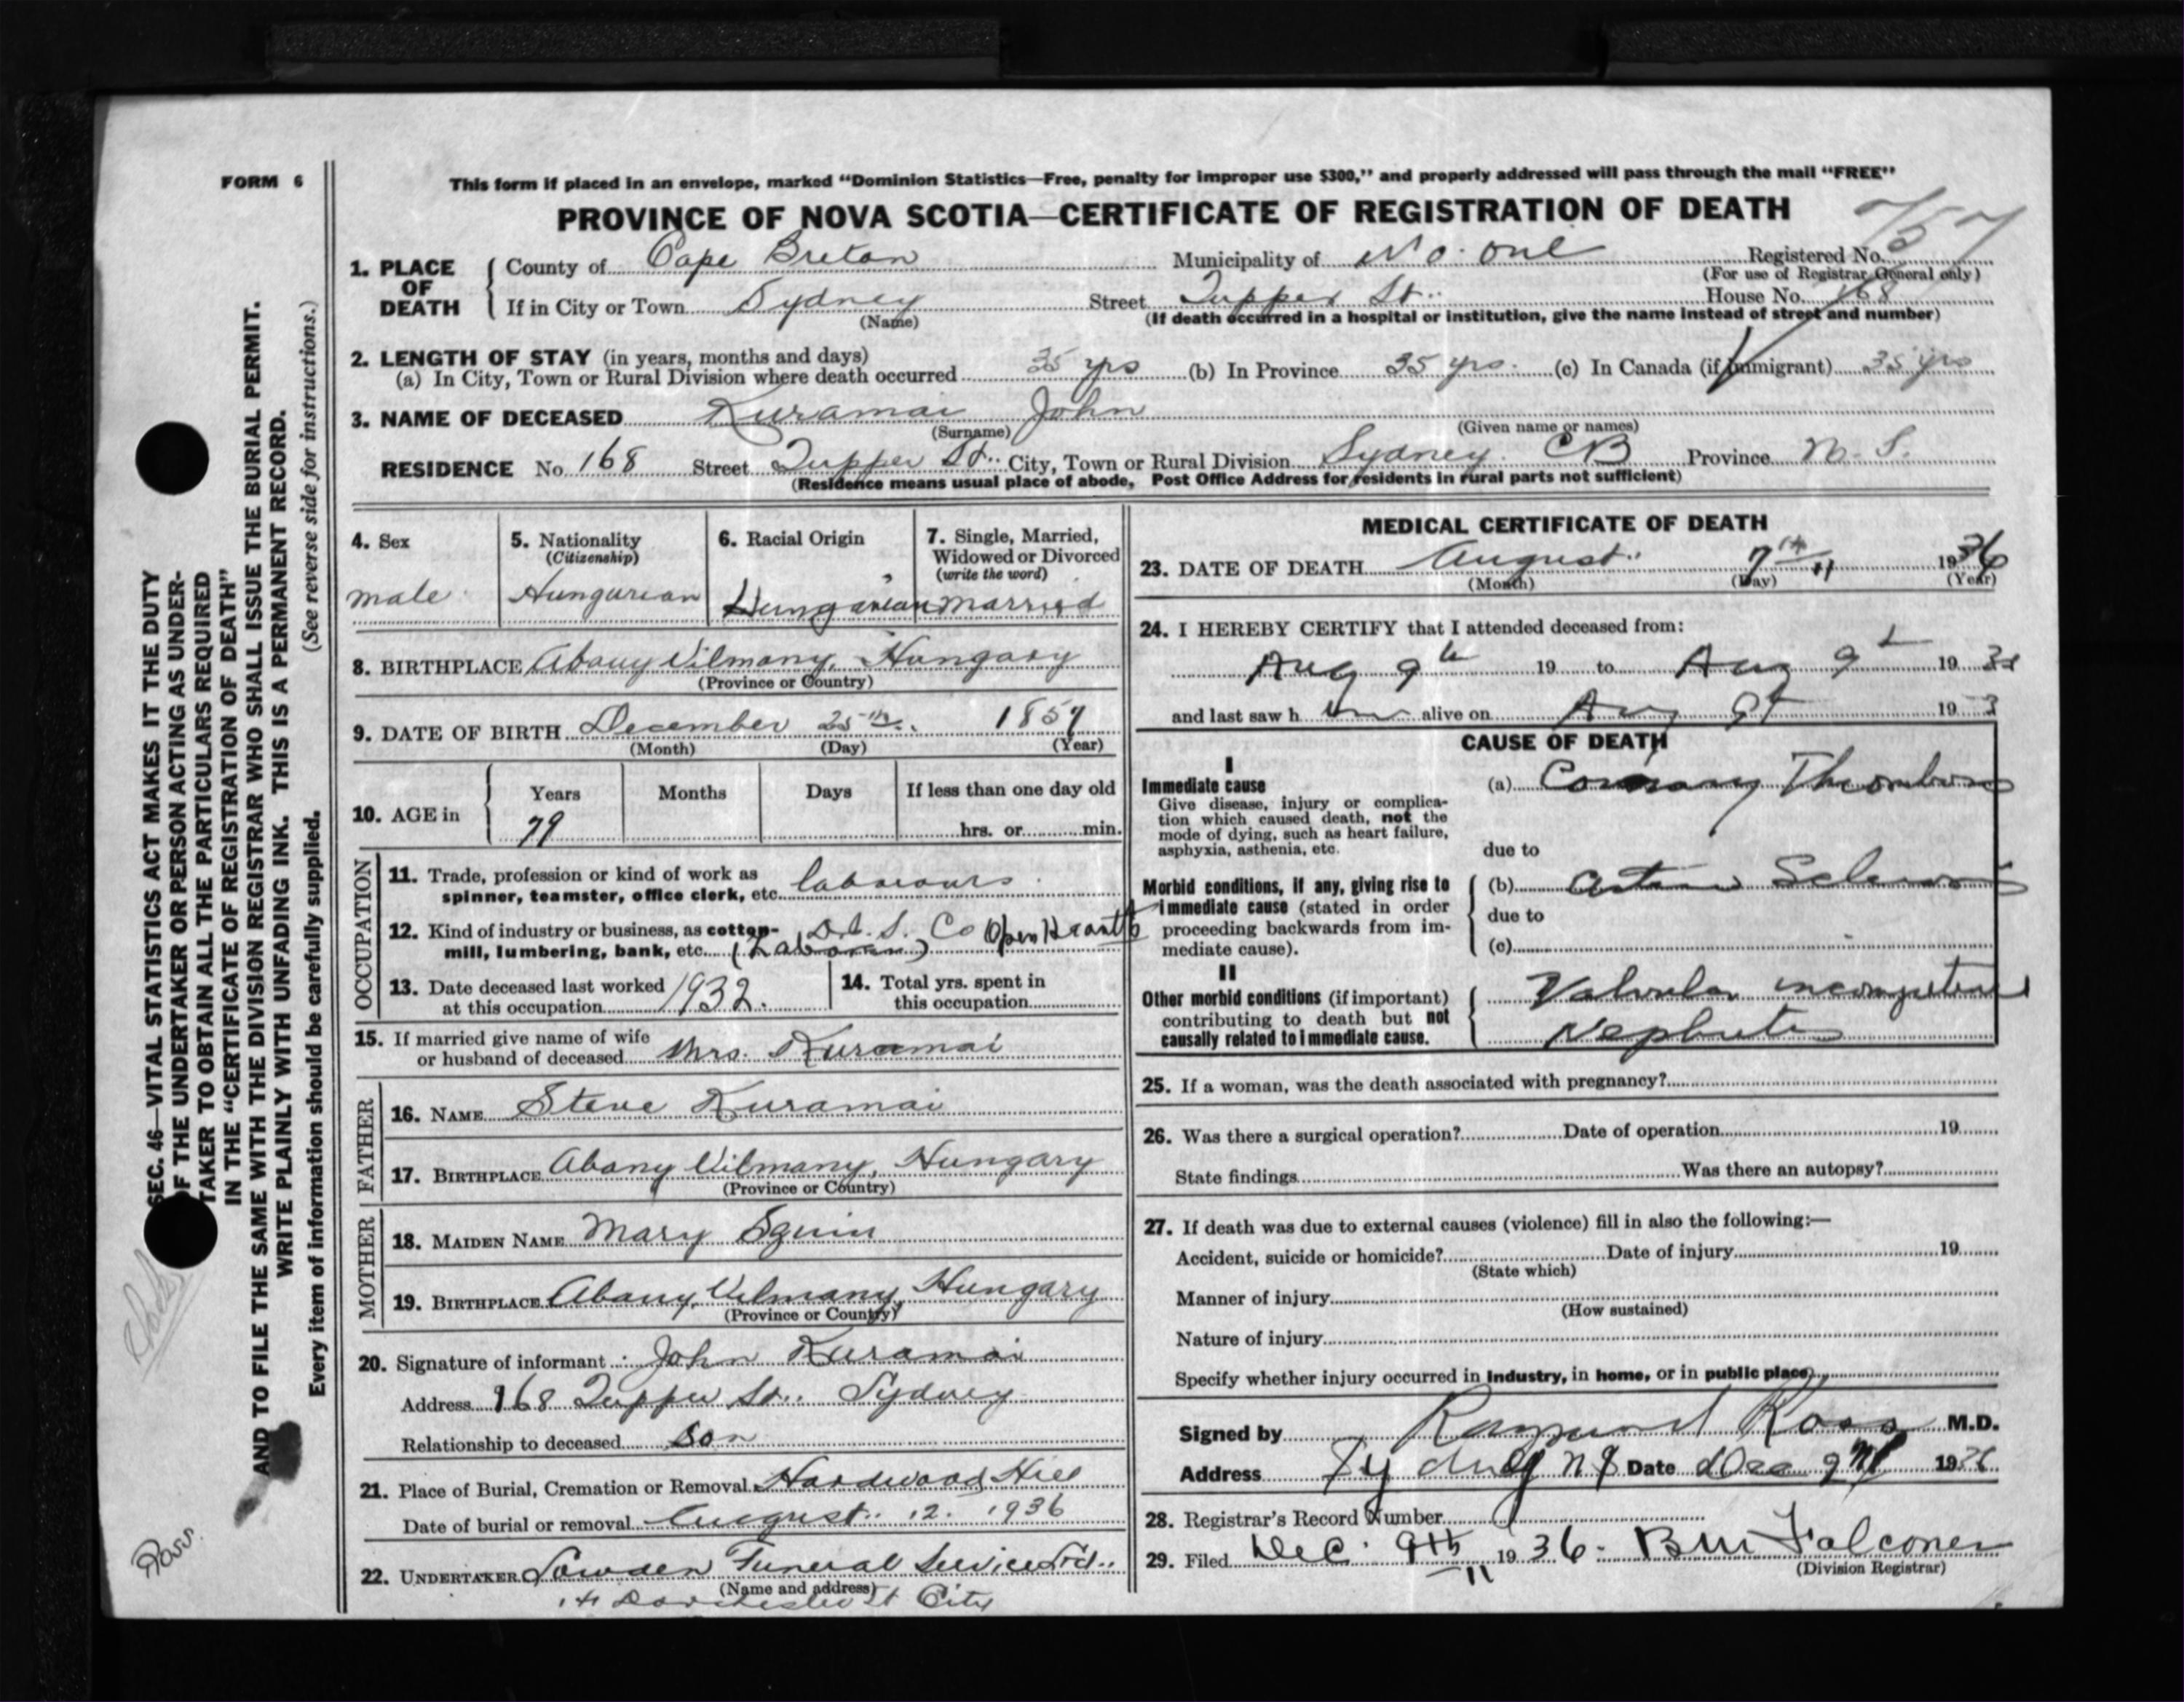 FORM 6
This form if placed in an envelope, marked "Dominion Statistics—Free, penalty for improper use $300," and properly addressed will pass through the mail "FREE"
PROVINCE OF NOVA SCOTIA—CERTIFICATE OF REGISTRATION OF DEATH
757
1. PLACE OF DEATH County of Cape Breton Municipality of No. One Registered No.
(For use of Registrar General only)
If in City or Town Sydney Street Tupper St. House No. 168
(Name) (If death occurred in a hospital or institution, give the name instead of street and number)
2. LENGTH OF STAY (in years, months and days)
(a) In City, Town or Rural Division where death occurred 35 yrs (b) In Province 35 yrs. (c) In Canada (if immigrant) 35 yrs
3. NAME OF DECEASED Kuramai John
(Surname) (Given name or names)
RESIDENCE No. 168 Street Tupper St. City, Town or Rural Division Sydney CB Province N.S.
(Residence means usual place of abode, Post Office Address for residents in rural parts not sufficient)
4. Sex male
5. Nationality (Citizenship) Hungarian
6. Racial Origin Hungarian
7. Single, Married, Widowed or Divorced (write the word) married
8. BIRTHPLACE Abauy Vilmany, Hungary
(Province or Country)
9. DATE OF BIRTH December 25th 1857
(Month) (Day) (Year)
10. AGE in Years Months Days If less than one day old
79 hrs. or min.
OCCUPATION
11. Trade, profession or kind of work as spinner, teamster, office clerk, etc. labourer
12. Kind of industry or business, as cotton-mill, lumbering, bank, etc. D.I.S. Co Open Hearth
(Laborer)
13. Date deceased last worked at this occupation 1932.
14. Total yrs. spent in this occupation
15. If married give name of wife or husband of deceased Mrs. Kuramai
FATHER
16. NAME Steve Kuramai
17. BIRTHPLACE Abany Vilmany, Hungary
(Province or Country)
MOTHER
18. MAIDEN NAME Mary
19. BIRTHPLACE Abany, Vilmany, Hungary
(Province or Country)
20. Signature of informant John Kuramai
Address 168 Tupper St. Sydney
Relationship to deceased Son
21. Place of Burial, Cremation or Removal Hardwood Hill
Date of burial or removal August 12. 1936
22. UNDERTAKER Sowden Funeral Service Ltd.
(Name and address)
Dorchester St City
MEDICAL CERTIFICATE OF DEATH
23. DATE OF DEATH August 7th 1936
(Month) (Day) (Year)
24. I HEREBY CERTIFY that I attended deceased from:
Aug 9th 19 to Aug 9th 19
and last saw h im alive on Aug 9th 193
CAUSE OF DEATH
I
Immediate cause (a) Coronary Thrombosis
Give disease, injury or complication which caused death, not the mode of dying, such as heart failure, asphyxia, asthenia, etc.
due to
Morbid conditions, if any, giving rise to immediate cause (stated in order proceeding backwards from immediate cause).
(b) Arterio Sclerosis
due to
(c)
II
Other morbid conditions (if important) contributing to death but not causally related to immediate cause.
Valvular incompetence
Nephritis
25. If a woman, was the death associated with pregnancy?
26. Was there a surgical operation? Date of operation 19
State findings Was there an autopsy?
27. If death was due to external causes (violence) fill in also the following:—
Accident, suicide or homicide? Date of injury 19
(State which)
Manner of injury
(How sustained)
Nature of injury
Specify whether injury occurred in industry, in home, or in public place
Signed by Raymond Ross M.D.
Address Sydney NS Date Dec 9th 1936
28. Registrar's Record Number
29. Filed Dec. 9th 1936. B M Falconer
(Division Registrar)
SEC. 46—VITAL STATISTICS ACT MAKES IT THE DUTY
OF THE UNDERTAKER OR PERSON ACTING AS UNDER-
TAKER TO OBTAIN ALL THE PARTICULARS REQUIRED
IN THE "CERTIFICATE OF REGISTRATION OF DEATH"
AND TO FILE THE SAME WITH THE DIVISION REGISTRAR WHO SHALL ISSUE THE BURIAL PERMIT.
WRITE PLAINLY WITH UNFADING INK. THIS IS A PERMANENT RECORD.
(See reverse side for instructions.)
Every item of information should be carefully supplied.